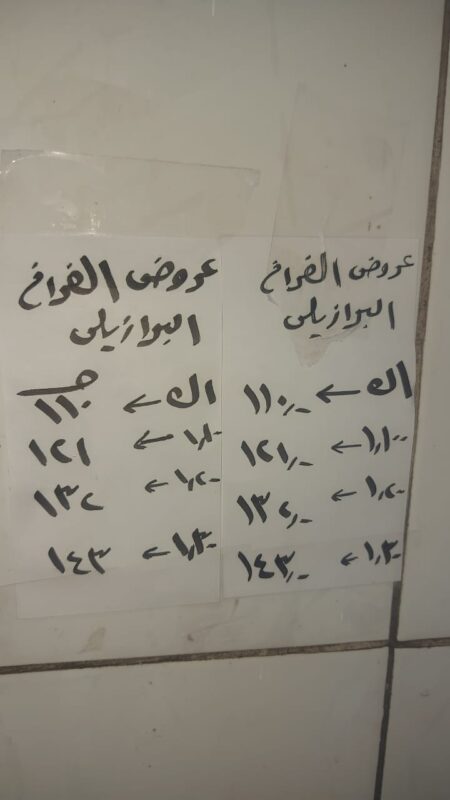 عروض الفراخ
البرازيلى
١ك ← ١١٠٫-
١٫١٠٠ ← ١٢١٫-
١٫٢٠٠ ← ١٣٢٫-
١٫٣٠٠ ← ١٤٣٫-
عروض الفراخ
البرازيلى
جـ
١ك ← ١١٠
١٫١٠٠ ← ١٢١
١٫٢٠٠ ← ١٣٢
١٫٣٠٠ ← ١٤٣